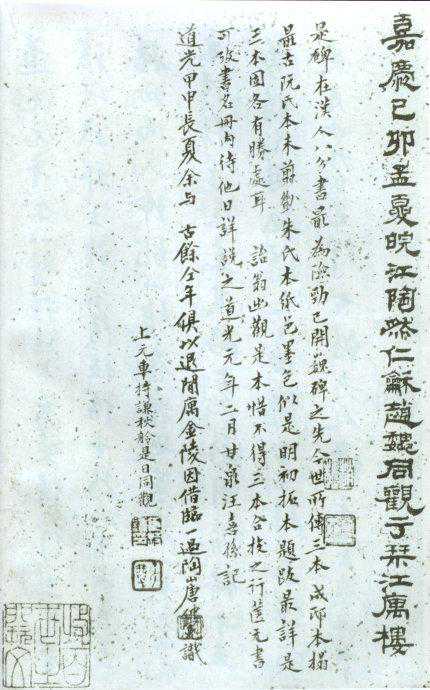 嘉慶己卯孟夏皖江陶仁龢趙魏同觀于琹江寓樓
是碑在漢人八分書最為險勁已開魏碑之先今世所傳三本成邸本搨
最古阮氏本未翦割朱氏本紙色墨色似是明初拓本題跋最詳是
三本固各有勝處耳 詒翁出觀是本惜不得三本合校之行篋无書
可攷書名冊內待他日詳說之道光元年二月甘泉汪喜孫記
道光甲申長夏余與 古餘仝年俱以退閒寓金陵因借臨一過陶山唐仲冕識
上元車持謙秋舲是日同觀